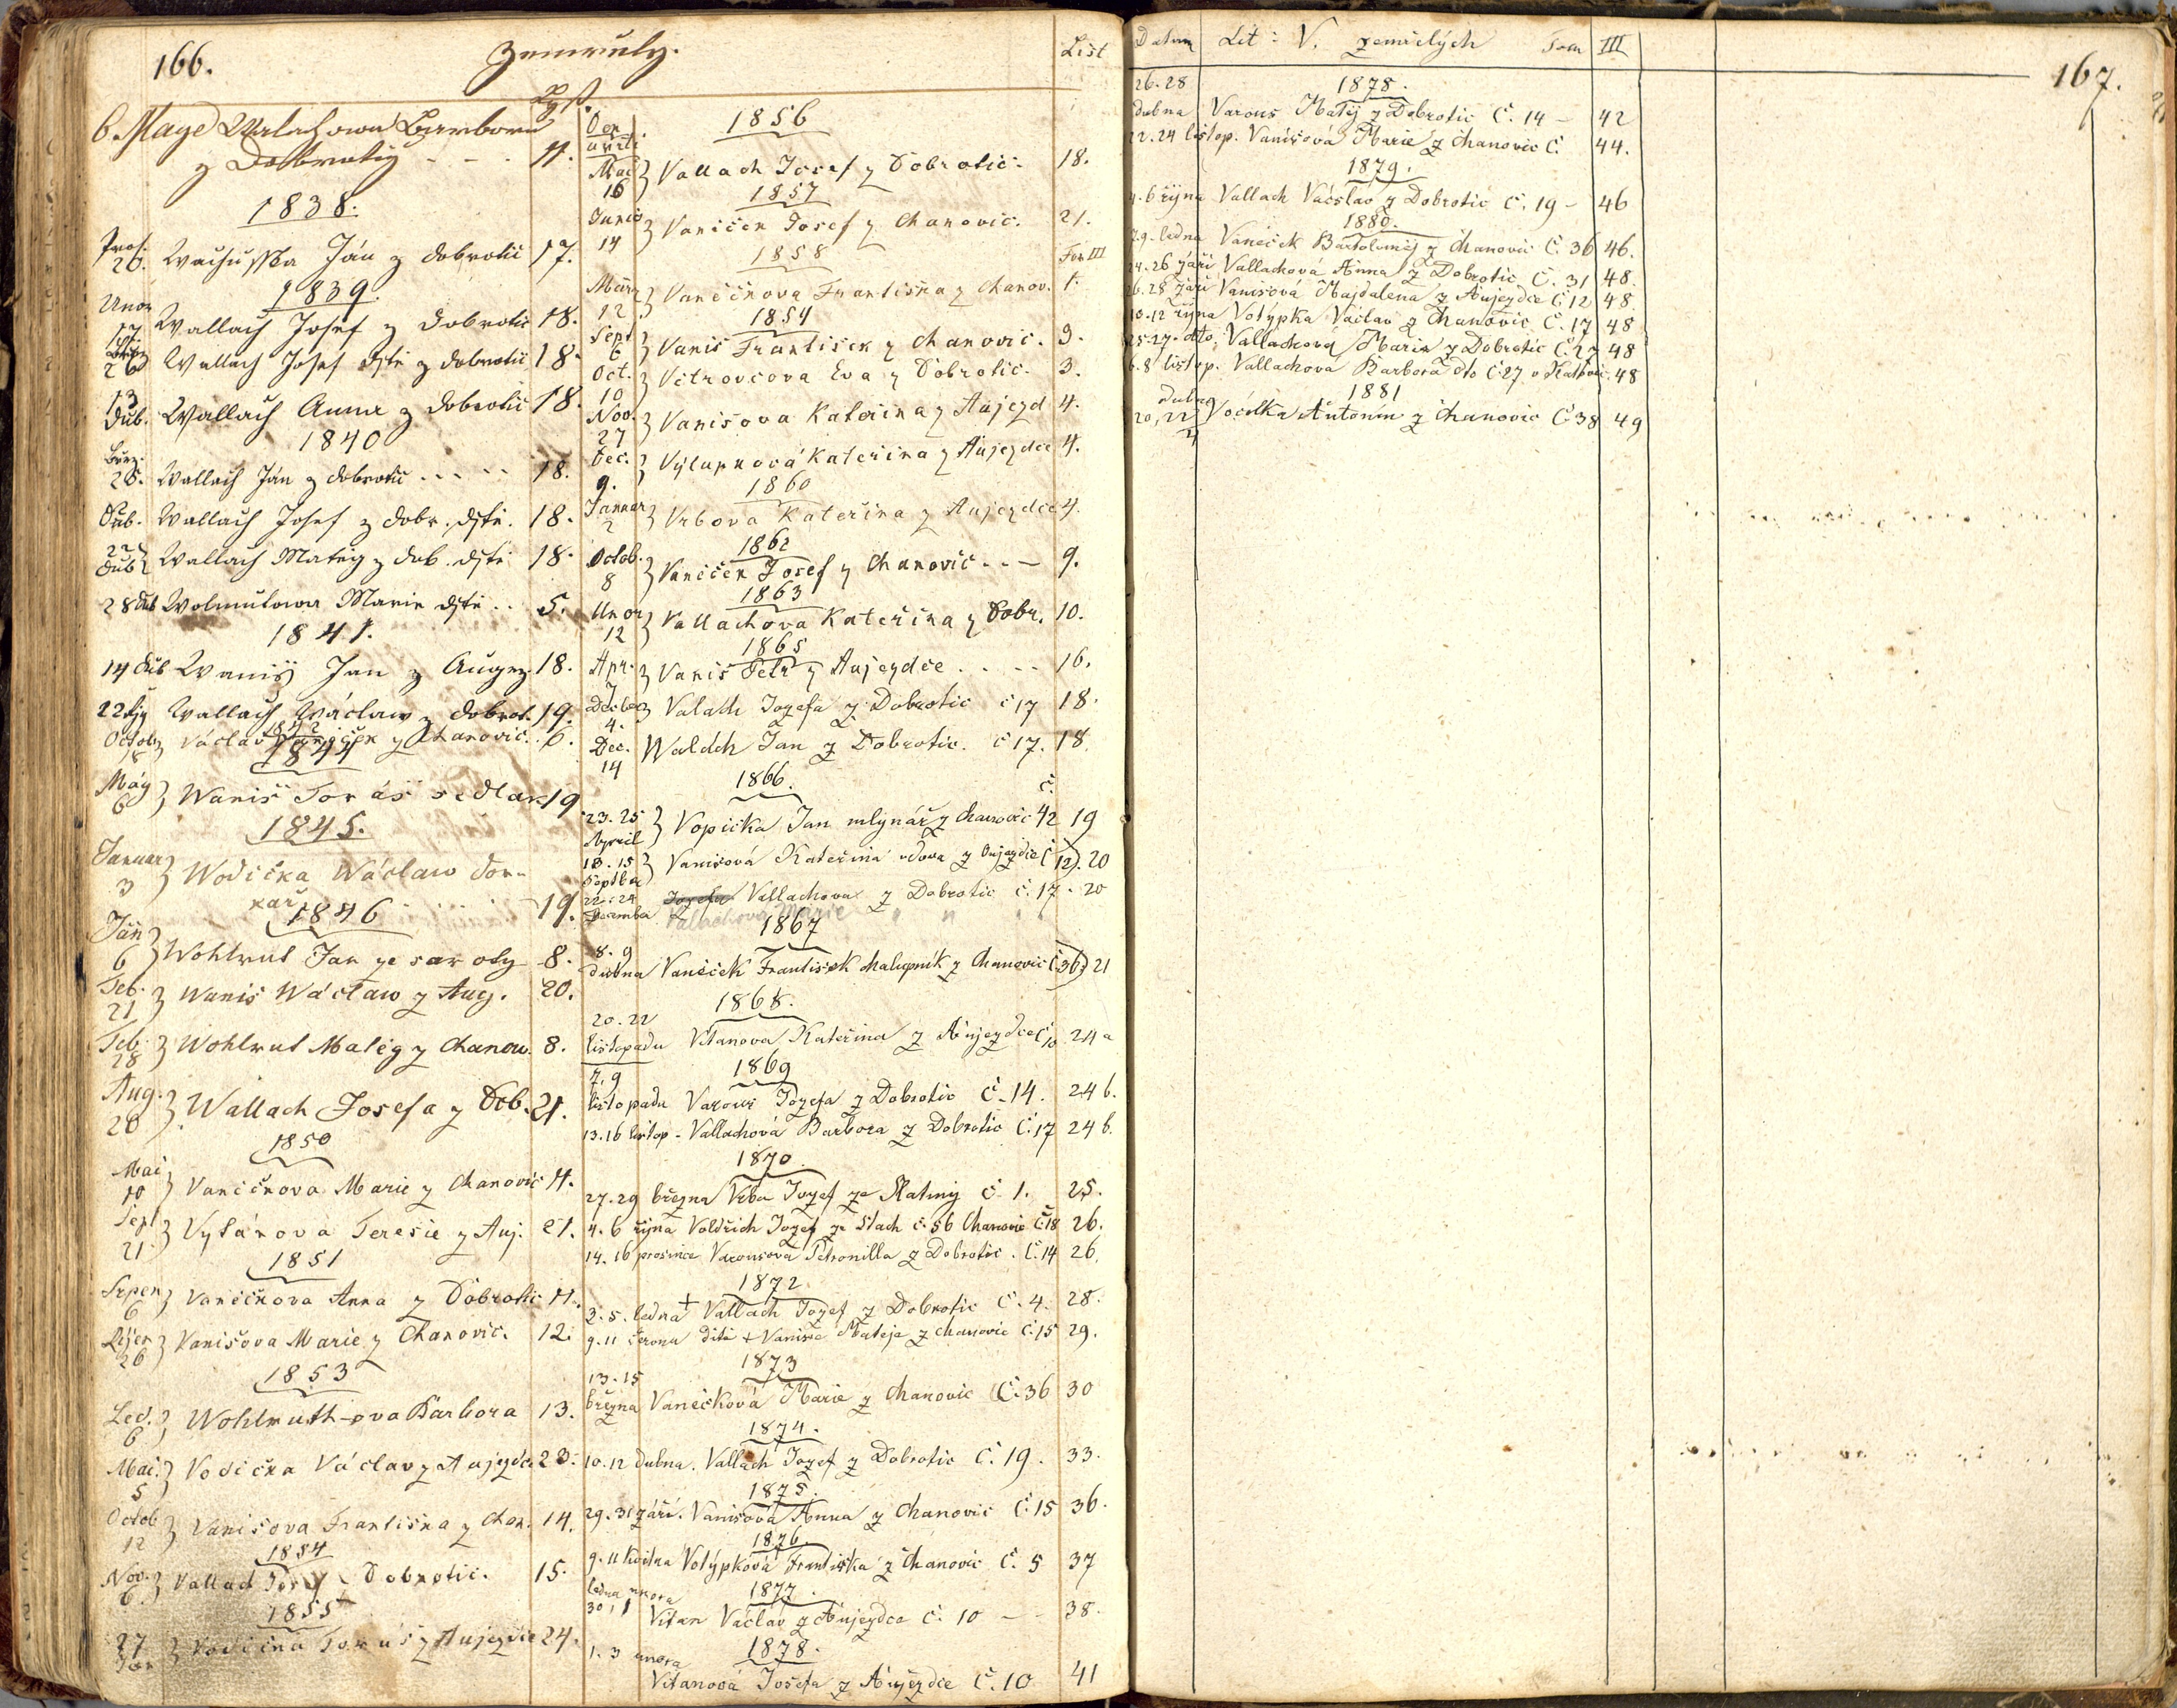 166.
Zemřelý.
List
6. Maye Walachowa Barbora
z Dobrotiz - - - 11.
1838.
Pros. 26. Wachuschka Ján z Dobrotic 17.
1839.
Unor 17 Wallach Josef z Dobrotic 18.
26 Wallach Josef djtě z Dobrotic 18.
13 Dub. Wallach Anna z Dobrotic 18.
1840
28. Wallach Ján z Dobrotic - - - 18.
Dub. Wallach Josef z Dobr. djtě. 18.
22 Dub Wallach Matěg z Dob. djtě 18.
28 Dub Wolmutowa Marie djtě .. 5.
1841.
14 Dub Waniš Jan z Augez. 18.
22 Wallach Wáclaw z Dobrot. 19.
Octob Václav Vaněček z Chanovic. 6.
1844
Máy 6 Waniš Tomáš sedlak 19
1845.
Januar 3 Wodička Wáclaw Dom-
kař . . . . 19.
1846
Jän 6 Wohlmut Jan ze samoty 8.
Feb. 21 Waniš Wáclaw z Aug. 20.
Feb. 28 Wohlmut Matěg z Chanow. 8.
Aug. 20 Wallach Josefa z Dob. 21.
1850
Mai 10 Vaněčkova Marie z Chanovic 11.
Sept 21 Vytánova Teresie z Auj. 21.
1851
Srpen 6 Vaněčkova Anna z Dobrotic 11.
Říjen 26 Vanišova Marie z Chanovic. 12.
1853
Led. 6 Wohlmuth-ova Barbora 13.
Mai. 5 Vodička Václav z Aujezdce 23.
Octob 12 Vanišova Františka z Chan. 14.
1854
Nov. 6. Vallach Josef z Dobrotic. 15.
1855
27 Jan Vodička Tomáš z Aujezdce 24.
List
1856
Mai 16 Vallach Josef z Dobrotic. 18.
1857
Junio 14 Vaniček Josef z Chanovic. 21.
1858 Tom III
März 12 Vaněčkova Františka z Chanov. 1.
1859
Sept 6 Vaniš František z Chanovic. 3.
Oct. 10 Větrovcova Eva z Dobrotic. 3.
Nov. 27 Vanišova Kateřina z Aujezd 4.
Dec. 9. Výlupková Kateřina z Aujezdce 4.
1860
Januar 2 Vrbova Kateřina z Aujezdce 4.
1862
Octob. 8 Vaněček Josef z Chanovic - - - 9.
1863
Unor 12 Vallachova Kateřina z Dobr. 10.
1865
Apr. 7 Vaniš Petr z Aujezdce . . - - 16.
4. Valach Jozefa z Dobrotic č 17 18.
Dec. 14 Walách Jan z Dobrotic. č 17. 18.
1866.
23. 25 April Vopička Jan mlynář z Chanovic č. 42 19
13. 15 Septber Vanišová Kateřina vdova z Oujezdce č 12). 20
22. 24 Decembra Jozefa Vallachova z Dobrotic č. 17 - 20
Valachova Marie " " "
1867
8. 9 dubna Vaněček František chalupník z Chanovic č 36) 21
1868.
20. 22 listopadu Vitanova Kateřina z Aujezdce č 10 24 a
1869
7. 9 listopadu Varous Jozefa z Dobrotic č. 14. 24 b.
13. 16 listop - Vallachová Barbora z Dobrotic č. 17 24 b.
1870.
27. 29 března Vrba Jozef ze Slatiny č. 1. 25.
4. 6 října Voldřich Jozef ze Stach č. 56 Chanovic č. 18 26.
14. 16 prosince Varousova Petronilla z Dobrotic. č. 14 26.
1872
3. 5. ledna + Vallach Jozef z Dobrotic č. 4. 28.
9. 11 června dítě + Vaniše Matěje z Chanovic č. 15 29.
1873
13. 15 března Vaněčková Marie z Chanovic č. 36 30
1874.
10. 12 dubna. Vallach Jozef z Dobrotic č. 19. 33.
1875.
29. 31 září. Vanišová Anna z Chanovic č. 15 36.
1876.
9. 11 května Votýpková Františka z Chanovic č. 5 37
1877.
ledna února 30, 1 Vitan Václav z Aujezdce č. 10 - - 38.
1878.
1. 3 února Vitanová Josefa z Aujezdce č. 10 41
Datum Lit: V. zemřelých Tom III
167.
1878.
26. 28 dubna Varous Matěj z Dobrotic č. 14 - 42
22. 24 listop. Vanišová Marie z Chanovic č. 44.
1879.
4. 6 října Vallach Václav z Dobrotic č. 19 - 46
1880.
7. 9. ledna Vaněček Bartoloměj z Chanovic č. 36 46.
24. 26 září Vallachová Anna z Dobrotic č. 31 48.
26. 28 září Vanišová Majdalena z Aujezdce č 12 48
10. 12 října Votýpka Václav z Chanovic č. 17 48
25. 27. dto. Vallachová Marie z Dobrotic č. 27 48
6. 8 listop. Vallachová Barbora dto č 27 v 48
1881
dubna 20, 22 Vočelka Antonín z Chanovic č 38 49